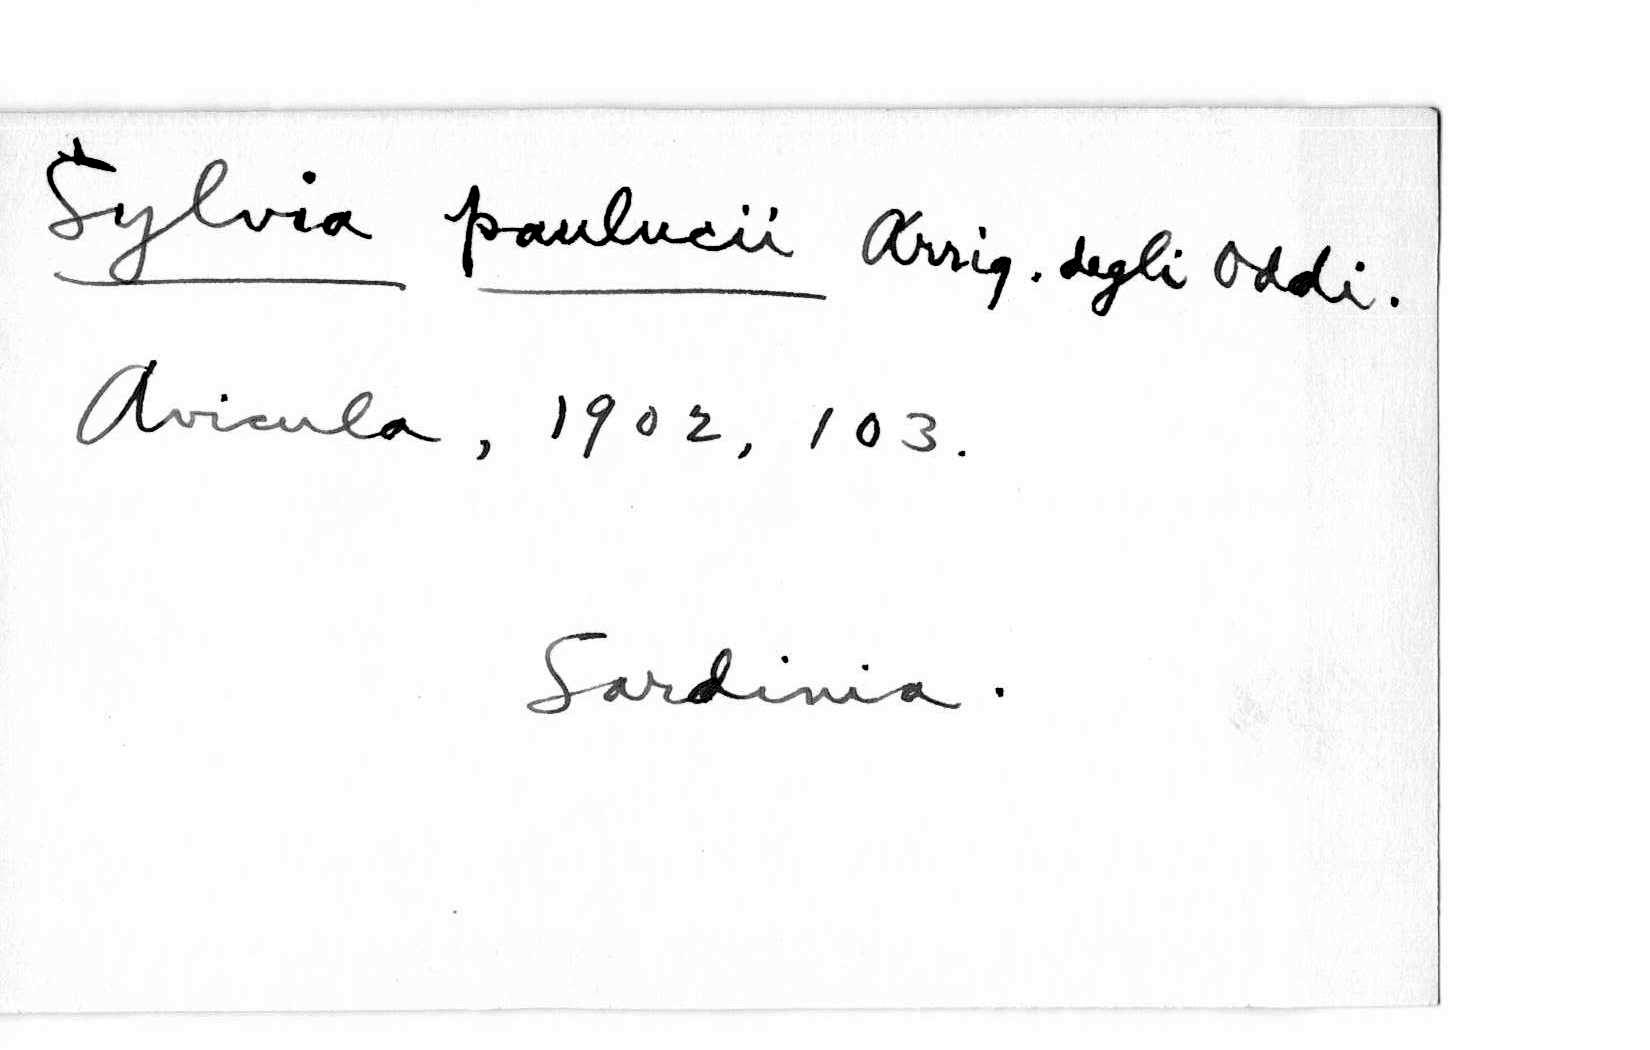 Sylvia paulucii Arrig. degli Oddi.
Avicula, 1902, 103.
Sardinia.